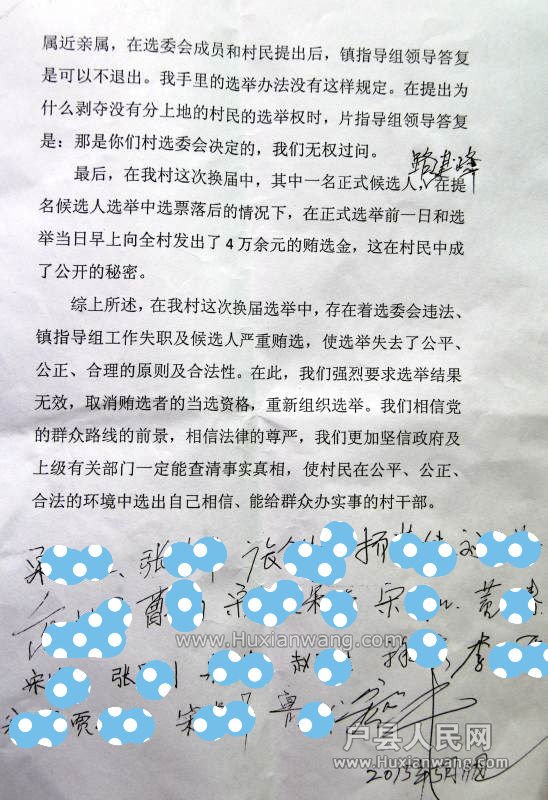 属近亲属，在选委会成员和村民提出后，镇指导组领导答复
是可以不退出。我手里的选举办法没有这样规定。在提出为
什么剥夺没有分上地的村民的选举权时，片指导组领导答复
是：那是你们村选委会决定的，我们无权过问。
最后，在我村这次换届中，其中一名正式候选人，在提
名候选人选举中选票落后的情况下，在正式选举前一日和选
举当日早上向全村发出了4万余元的贿选金，这在村民中成
了公开的秘密。
综上所述，在我村这次换届选举中，存在着选委会违法、
镇指导组工作失职及候选人严重贿选，使选举失去了公平、
公正、合理的原则及合法性。在此，我们强烈要求选举结果
无效，取消贿选者的当选资格，重新组织选举。我们相信党
的群众路线的前景，相信法律的尊严，我们更加坚信政府及
上级有关部门一定能查清事实真相，使村民在公平、公正、
合法的环境中选出自己相信、能给群众办实事的村干部。
张
曹 宋
www.Huxianwang.com
宋 张 赵 李
贾 宋
户县人民网
www.Huxianwang.com